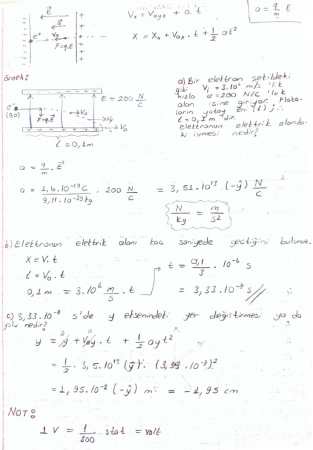 Vx = Vox + a.t
a = q/m E
x = x₀ + Vox.t + 1/2 at²
F = q.E
E = 200 N/C
(0,0)
l = 0,1m
a) Bir elektron şekildeki gibi Vi = 3.10⁶ m/s 'lik hızla e = 200 N/C 'luk alan içine giriyor. Plakaların yatay eni (l); l = 0,1 m 'dir. elektronun elektrik alanda ivmesi nedir?
a = q/m . E
a = 1,6.10⁻¹⁹ C / 9,11.10⁻³¹ kg . 200 N/C = 3,51.10¹³ (-ŷ) N/C
N/kg = m/s²
b) Elektronun elektrik alanı kaç saniyede geçtiğini bulunuz.
x = V.t
l = V₀.t
0,1 m = 3.10⁶ m/s . t
t = 0,1/3 . 10⁻⁶ s
= 3,33.10⁻⁸ s
c) 3,33.10⁻⁸ s'de y eksenindeki yer değiştirmesi ya da yolu nedir?
y = y₀ + V₀y.t + 1/2 ay t²
= 1/2 . 3,5.10¹³ (ŷ) . (3,33.10⁻⁸)²
= 1,95.10⁻² (-ŷ) m = -1,95 cm
NOT:
1 V = 1/300 stat = volt